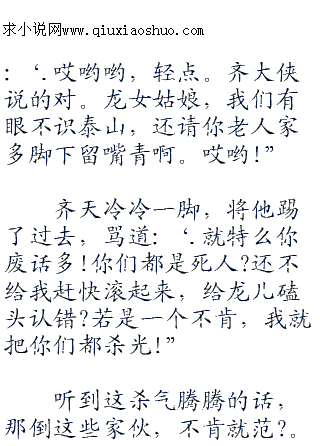 求小说网www.qiuxiaoshuo.com
：‘.哎哟哟，轻点。齐大侠
说的对。龙女姑娘，我们有
眼不识泰山，还请你老人家
多脚下留嘴青啊。哎哟!”
齐天冷冷一脚，将他踢
了过去，骂道：‘.就特么你
废话多!你们都是死人?还不
给我赶快滚起来，给龙儿磕
头认错?若是一个不肯，我就
把你们都杀光!”
听到这杀气腾腾的话，
那倒这些家伙，不肯就范?。